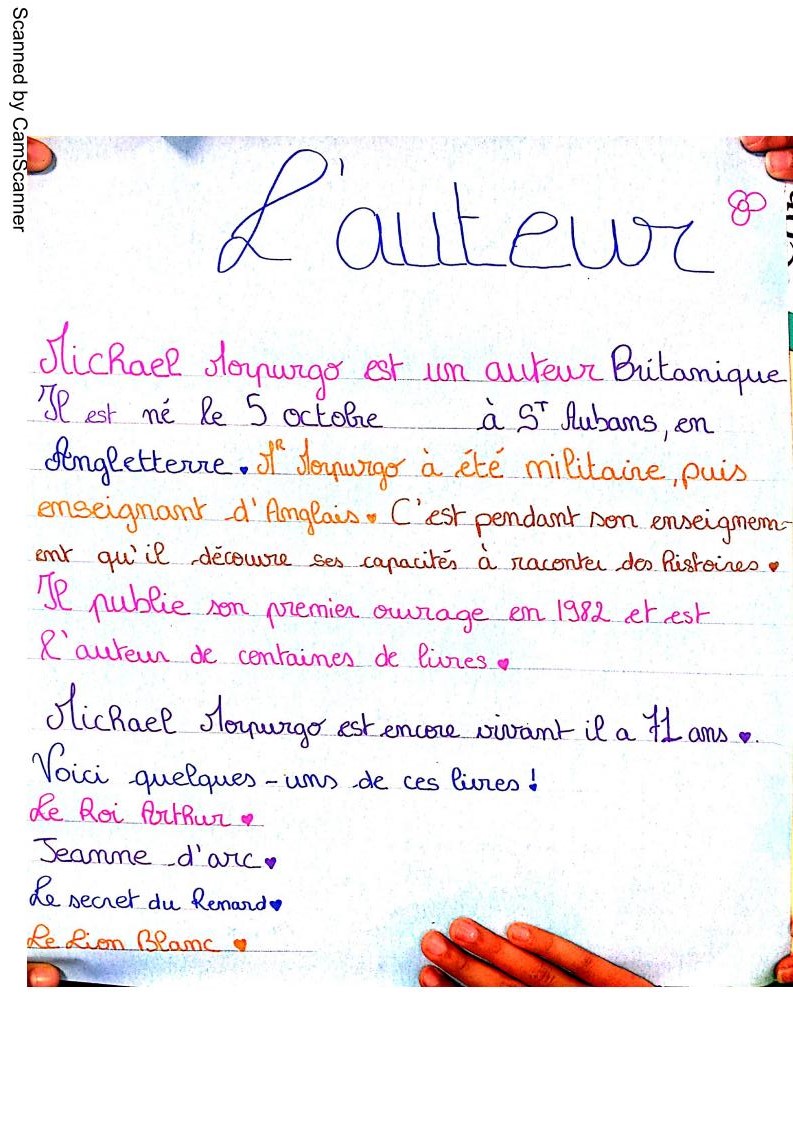 Scanned by CamScanner
L'auteur
Michael Morpurgo est un auteur Britanique
Il est né le 5 octobre à St Aubans, en
Angletterre. Mr Morpurgo à été militaire, puis
enseignant d'Anglais. C'est pendant son enseignem-
ent qu'il découvre ses capacités à raconter des histoires.
Il publie son premier ouvrage en 1982 et est
l'auteur de centaines de livres.
Michael Morpurgo est encore vivant il a 71 ans.
Voici quelques-uns de ces livres!
Le Roi Arthur
Jeanne d'arc
Le secret du Renard
Le Lion Blanc